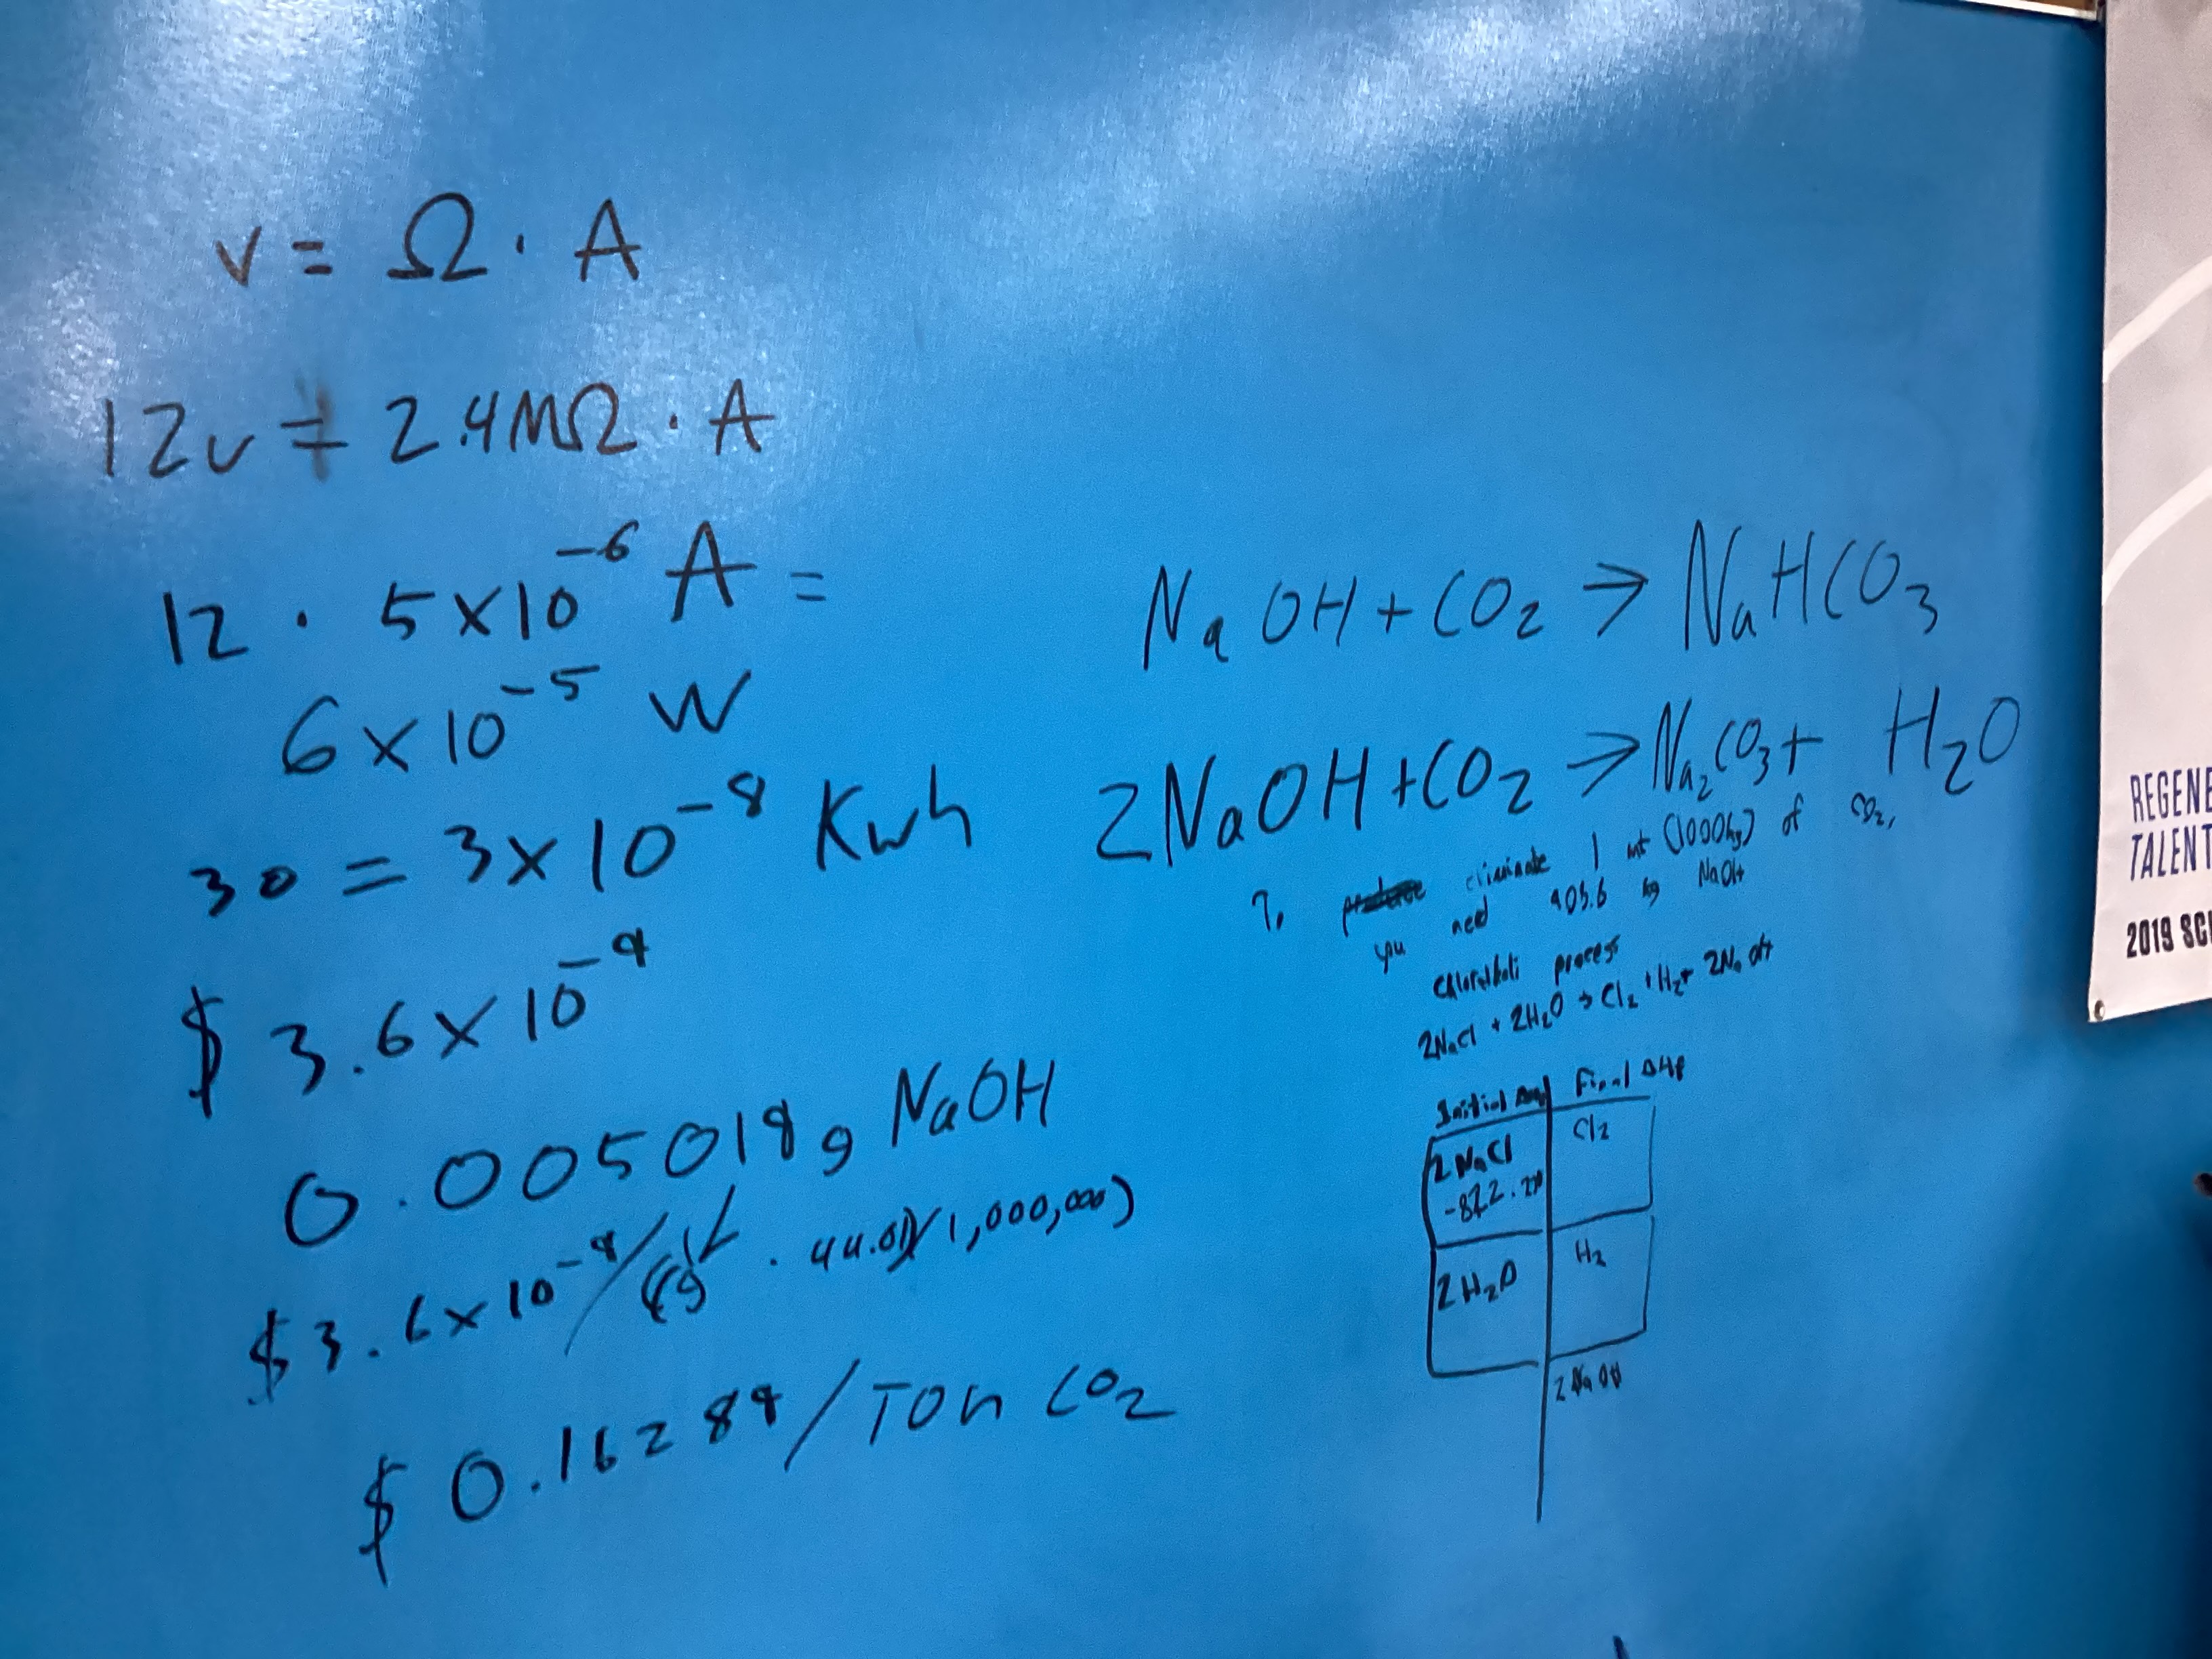 V = Ω · A
12v = 2.4MΩ · A
12 · 5x10⁻⁶ A =
6x10⁻⁵ W
30 = 3x10⁻⁸ Kwh
$ 3.6x10⁻⁹
0.005018g NaOH
$3.6x10⁻⁹/ · 44.01)(1,000,000)
$ 0.16289/Ton CO₂
NaOH + CO₂ → NaHCO₃
2NaOH + CO₂ → Na₂CO₃ + H₂O
To eliminate 1 mt (1000kg) of CO₂,
you need 908.6 kg NaOH
Chloralkali process
2NaCl + 2H₂O → Cl₂ + H₂ + 2NaOH
Initial Final ΔHf
2NaCl Cl₂
-822.2
2H₂O H₂
2NaOH
REGENE
TALENT
2019 SCI